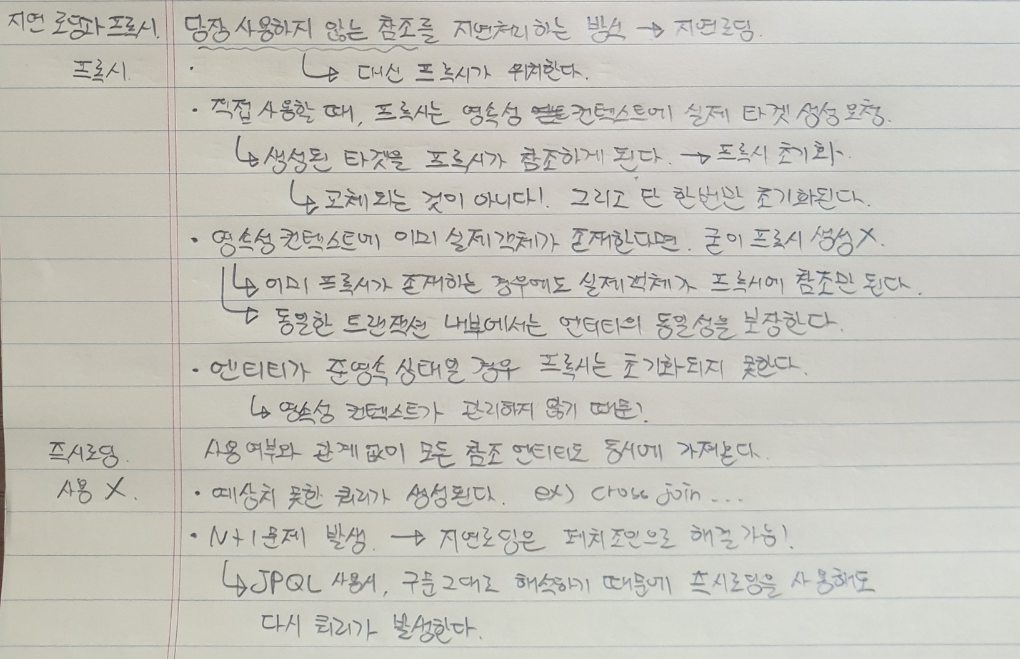 지연 로딩과 프록시. 당장 사용하지 않는 참조를 지연처리하는 방식 → 지연로딩.
프록시 · ↳ 대신 프록시가 위치한다.
· 직접 사용할 때, 프록시는 영속성 컨텍스트에 실제 타겟 생성 요청.
↳ 생성된 타겟을 프록시가 참조하게 된다. → 프록시 초기화.
↳ 교체되는 것이 아니다!. 그리고 단 한번만 초기화된다.
· 영속성 컨텍스트에 이미 실제객체가 존재한다면. 굳이 프록시 생성X.
↳ 이미 프록시가 존재하는 경우에도 실제객체가 프록시에 참조만 된다.
↳ 동일한 트랜잭션 내부에서는 엔티티의 동일성을 보장한다.
· 엔티티가 준영속 상태일 경우 프록시는 초기화되지 못한다.
↳ 영속성 컨텍스트가 관리하지 않기 때문!
즉시로딩. 사용여부와 관계없이 모든 참조 엔티티도 동시에 가져온다.
사용 X. · 예상치 못한 쿼리가 생성된다. ex) cross join ...
· N+1 문제 발생. → 지연로딩은 페치조인으로 해결가능!
↳ JPQL 사용시, 구문 그대로 해석하기 때문에 즉시로딩을 사용해도
다시 쿼리가 발생한다.